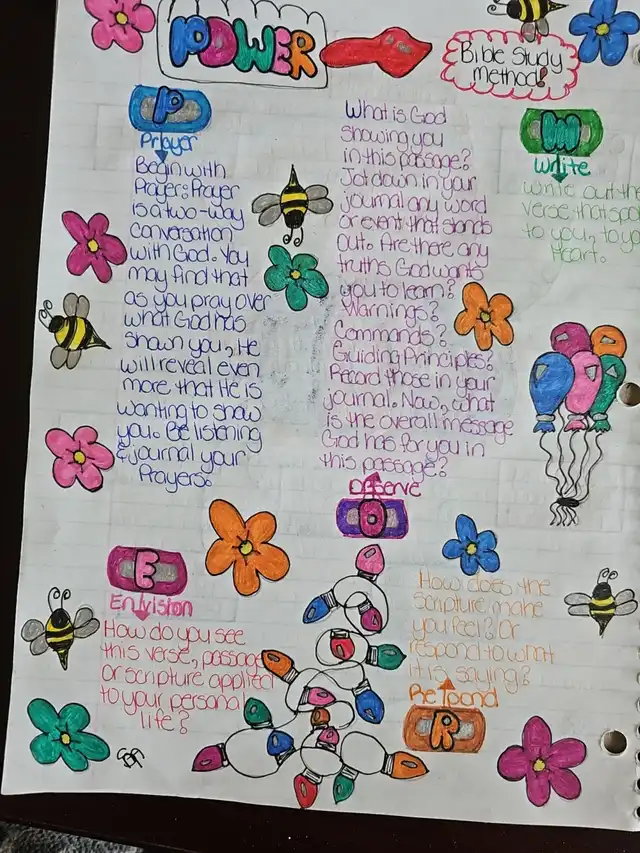 POWER
Bible Study
Method!
P
Prayer
Begin with
Prayer: Prayer
is a two-way
conversation
with God. You
may find that
as you pray over
what God has
shown you, He
will reveal even
more that He is
wanting to show
you. Be listening
& journal your
Prayers.
What is God
showing you
in this passage?
Jot down in your
journal any word
or event that stands
out. Are there any
truths God wants
you to learn?
Warnings?
Commands?
Guiding Principles?
Record those in your
journal. Now, what
is the overall message
God has for you in
this passage?
Observe
O
W
Write
Write out the
verse that
to you, to your
Heart.
E
Envision
How do you see
this verse, passage
or scripture applied
to your personal
life?
How does the
scripture make
you feel? Or
respond to what
it is saying?
Respond
R